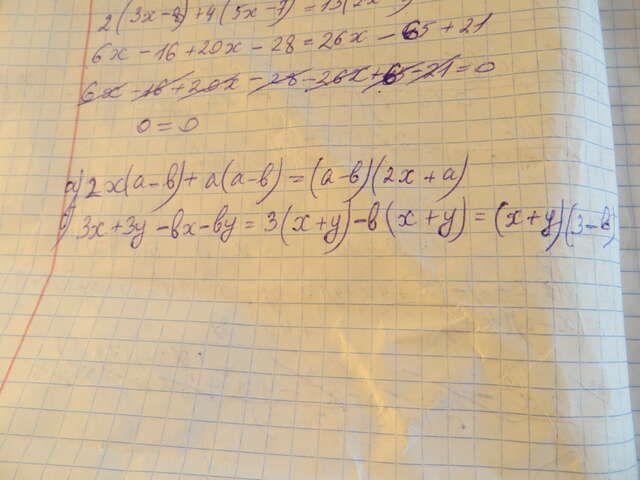 2(3x-8)+4(5x-7)=13(2x
6x-16+20x-28=26x-65+21
6x-16+20x-28-26x+65-21=0
0=0
а) 2x(a-b)+a(a-b)=(a-b)(2x+a)
3x+3y-bx-by=3(x+y)-b(x+y)=(x+y)(3-b)